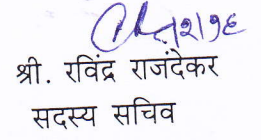 श्री. रविंद्र राजंदेकर
सदस्य सचिव